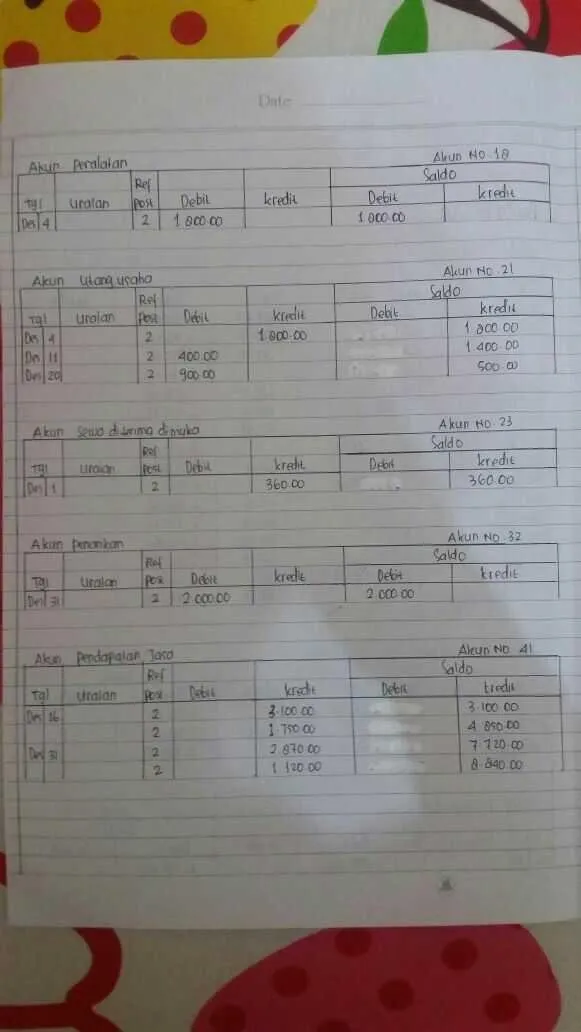 Date
Akun Peralatan Akun No. 18
Saldo
Tgl Uraian Ref Post Debit kredit Debit kredit
Des 4 2 1 800.00 1 800.00
Akun Utang usaha Akun No. 21
Saldo
Tgl Uraian Ref Post Debit kredit Debit kredit
Des 4 2 1.800.00 1 800 00
Des 11 2 400.00 1 400.00
Des 20 2 900.00 500.00
Akun Sewa diterima dimuka Akun No. 23
Saldo
Tgl Uraian Ref Post Debit kredit Debit kredit
Des 1 2 360.00 360.00
Akun Penarikan Akun No. 32
Saldo
Tgl Uraian Ref Pos Debit kredit Debit kredit
Des 31 2 2.000.00 2.000.00
Akun Pendapatan Jasa Akun No 41
Saldo
Tgl Uraian Ref Post Debit kredit Debit kredit
Des 16 2 3.100.00 3.100.00
2 1.750.00 4.850.00
Des 31 2 2.870.00 7.720.00
2 1 120.00 8.840.00